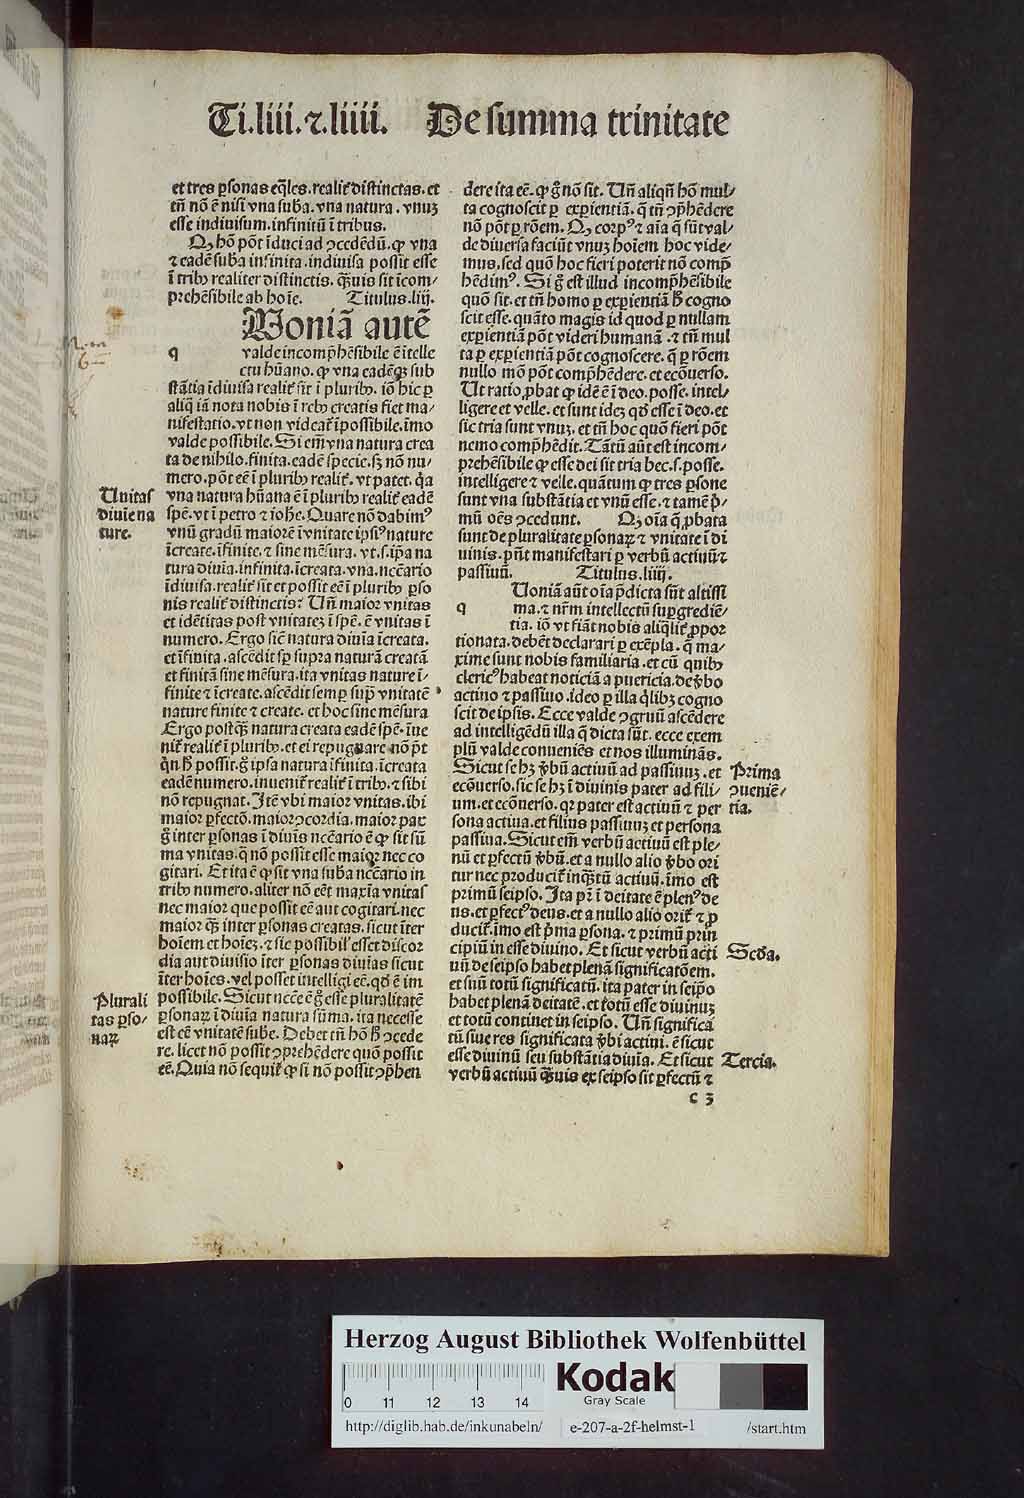 Ti.liii.⁊.liiii. De summa trinitate
et tres ꝑsonas eq̄les.realit̃ distinctas.et
tñ nō ē nisi vna suba̅.vna natura.vnuꝫ
esse indiuisum.infinitū ī tribus.
Qꝫ hō pōt īduci ad ꝯcedēdū.ꝙ vna
⁊ eadē suba̅ infinita.indiuisa possit esse
ī tribꝰ realiter distinctis.q̄uis sit īcom/
prehēsibile ab hoīe. Titulus.liij.
Uoniā autē
q valde incomp̄hēsibile ē ītelle
ctu hūano.ꝙ vna eadēqꝫ sub
stātia īdiuisa realit̃ sit ī pluribꝰ.iō hic ꝑ
aliq̄ iā nota nobis ī rebꝰ creatis fiet ma/
nifestatio.vt non videat̃ īpossibile.īmo
valde possibile.Si em̄ vna natura crea
ta de nihilo.finita.eadē specie.sꝫ nō nu/
mero.pōt eē ī pluribꝰ realit̃.vt patet.q̇a
vna natura hūana ē ī pluribꝰ realit̃ eadē
spē.vt ī petro ⁊ iohe̅.Quare nō dabimꝰ
vnū gradū maiorē īvnitate ipsiꝰ nature
īcreate.īfinite.⁊ sine mēsura.vt.s.ip̄a na
tura diuīa.infinita.īcreata.vna.nccēario
īdiuisa.realit̃ sit et possit eē ī pluribꝰ ꝑso
nis realit̃ distinctis? Uñ maior vnitas
et idētitas post vnitateꝫ ī spē.ē vnitas ī
numero.Ergo sic̄ natura diuīa īcreata.
et īfinita.ascēdit sp̄ supra naturā creatā
et finitā sine mēsura.ita vnitas nature ī/
finite ⁊ īcreate.ascēdit semꝑ sup̄ vnitatē
nature finite ⁊ create.et hoc sine mēsura
Ergo postq̄ꝫ natura creata eadē spē.īue
nit̃ realit̃ ī pluribꝰ.et ei repugnare nō p̄t
q̇n hꝰ possit.g̊ ipsa natura īfinita.īcreata
eadē numero.inuenit̃ realit̃ ī tribꝰ.⁊ sibi
nō repugnat.Itē vbi maior vnitas.ibi
maior ꝑfectō.maior ꝯcordia.maior pax
g̊ inter ꝑsonas ī diuīs nccēario ē ꝙ sit sū
ma vnitas.q̄ nō possit esse maior nec co
gitari.Et ita ē ꝙ sit vna suba̅ nccēario in
tribꝰ numero.aliter nō eēt maxīa vnitas
nec maior que possit eē aut cogitari.nec
maior q̄ꝫ inter ꝑsonas creatas.sicut īter
hoīem et hoīeꝫ.⁊ sic possibil̃ esset discor
dia aut diuisio īter ꝑsonas diuīas sicut
īter hoīes.vel posset intelligi eē.qd̊ ē im
possibile.Sicut nccēe ē g̊ esse pluralitatē
ꝑsonaꝝ ī diuīa natura sūma.ita necesse
est eē vnitatē sube̅.Debet tñ hō hꝰ ꝯcede
re.licet nō possit ꝯprehēdere quō possit
eē.Quia nō sequit̃ ꝙ si nō possit ꝯp̄hen
Unitas
diuine na
ture.
Plurali
tas ꝑso/
naꝝ
dere ita eē.ꝙ g̊ nō sit.Uñ aliqn̄ hō mul/
ta cognoscit ꝑ exꝑientiā.q̄ tñ ꝯp̄hēdere
nō pōt ꝑ rōem.Qꝫ corpꝰ ⁊ aīa q̄ sūt val/
de diuersa faciūt vnuꝫ hoīem hoc vide/
mus.sed quō hoc fieri poterit nō comp̄
hēdimꝰ.Si g̊ est illud incomp̄hēsibile
quō sit.et tñ homo ꝑ exꝑientiā hꝰ cogno
scit esse.quāto magis id quod ꝑ nullam
exꝑientiā pōt videri humanā.⁊ tñ mul
ta ꝑ exꝑientiā pōt cognoscere.q̄ ꝑ rōem
nullo mō pōt comp̄hēdere.et ecōuerso.
Ut ratio ꝓbat ꝙ idē ē ī deo.posse.intel/
ligere et velle.et sunt ideꝫ qd̊ esse ī deo.et
sic tria sunt vnuꝫ.et tñ hoc quō fieri pōt
nemo comp̄hēdit.Tātū aūt est incom/
prehēsibile ꝙ esse dei sit tria hec.s.posse.
intelligere ⁊ velle.quātum ꝙ tres ꝑsone
sunt vna substātia et vnū esse.⁊ tamē p̄/
mū oēs ꝯcedunt. Qꝫ oīa q̄ ꝓbata
sunt de pluralitate ꝑsonaꝝ ⁊ vnitate ī di
uinis.pn̄t manifestari ꝑ verbū actiuū ⁊
passiuū. Titulus.liiij.
Uoniā aūt oīa p̄dicta sūt altissi
q ma.⁊ nr̄m intellectū suꝑgrediē/
tia.iō vt fiāt nobis aliq̄lit̃ ꝓpor
tionata.debēt declarari ꝑ exēpla.q̄ ma/
xime sunt nobis familiaria.et cū quibꝰ
clericꝰ habeat noticiā a puericia.de v̄bo
actiuo ⁊ passiuo.ideo ꝑ illa q̄libꝫ cogno
scit de ipsis.Ecce valde ꝯgruū ascēdere
ad intelligēdū illa q̄ dicta sūt.ecce exem
plū valde conueniēs et nos illuminās.
Sicut se hꝫ v̄bū actiuū ad passiuuꝫ.et
ecōuerso.sic se hꝫ ī diuinis pater ad fili/
um.et ecōuerso.qꝛ pater est actiuū ⁊ per
sona actiua.et filius passiuuꝫ et persona
passiua.Sicut em̄ verbū actiuū est ple/
nū et ꝑfectū v̄bū.et a nullo alio v̄bo ori
tur nec producit̃ inq̄ꝫtū actiuū.īmo est
primū seipso.Ita pr̄ ī deitate ē plenꝰ de
us.et ꝑfectꝰ deus.et a nullo alio orit̃ ⁊ ꝓ
ducit̃.īmo est p̄ma ꝑsona.⁊ primū prin
cipiū in esse diuino.Et sicut verbū acti
uū de seipso habet plenā significatōem.
et suū totū significatū.ita pater in seipso
habet plenā deitatē.et totū esse diuinuꝫ
et totū continet in seipso.Uñ significa
tū siue res significata v̄bi actiui.ē sicut
esse diuinū seu substātia diuīa.Et sicut
verbū actiuū q̄uis ex seipso sit ꝑfectū ⁊
Prima
ꝯueniē/
tia.
Scd̊a.
Tercia.
c 3
Herzog August Bibliothek Wolfenbüttel
0 11 12 13 14
Kodak
Gray Scale
http://diglib.hab.de/inkunabeln/ e-207-a-2f-helmst-1 /start.htm